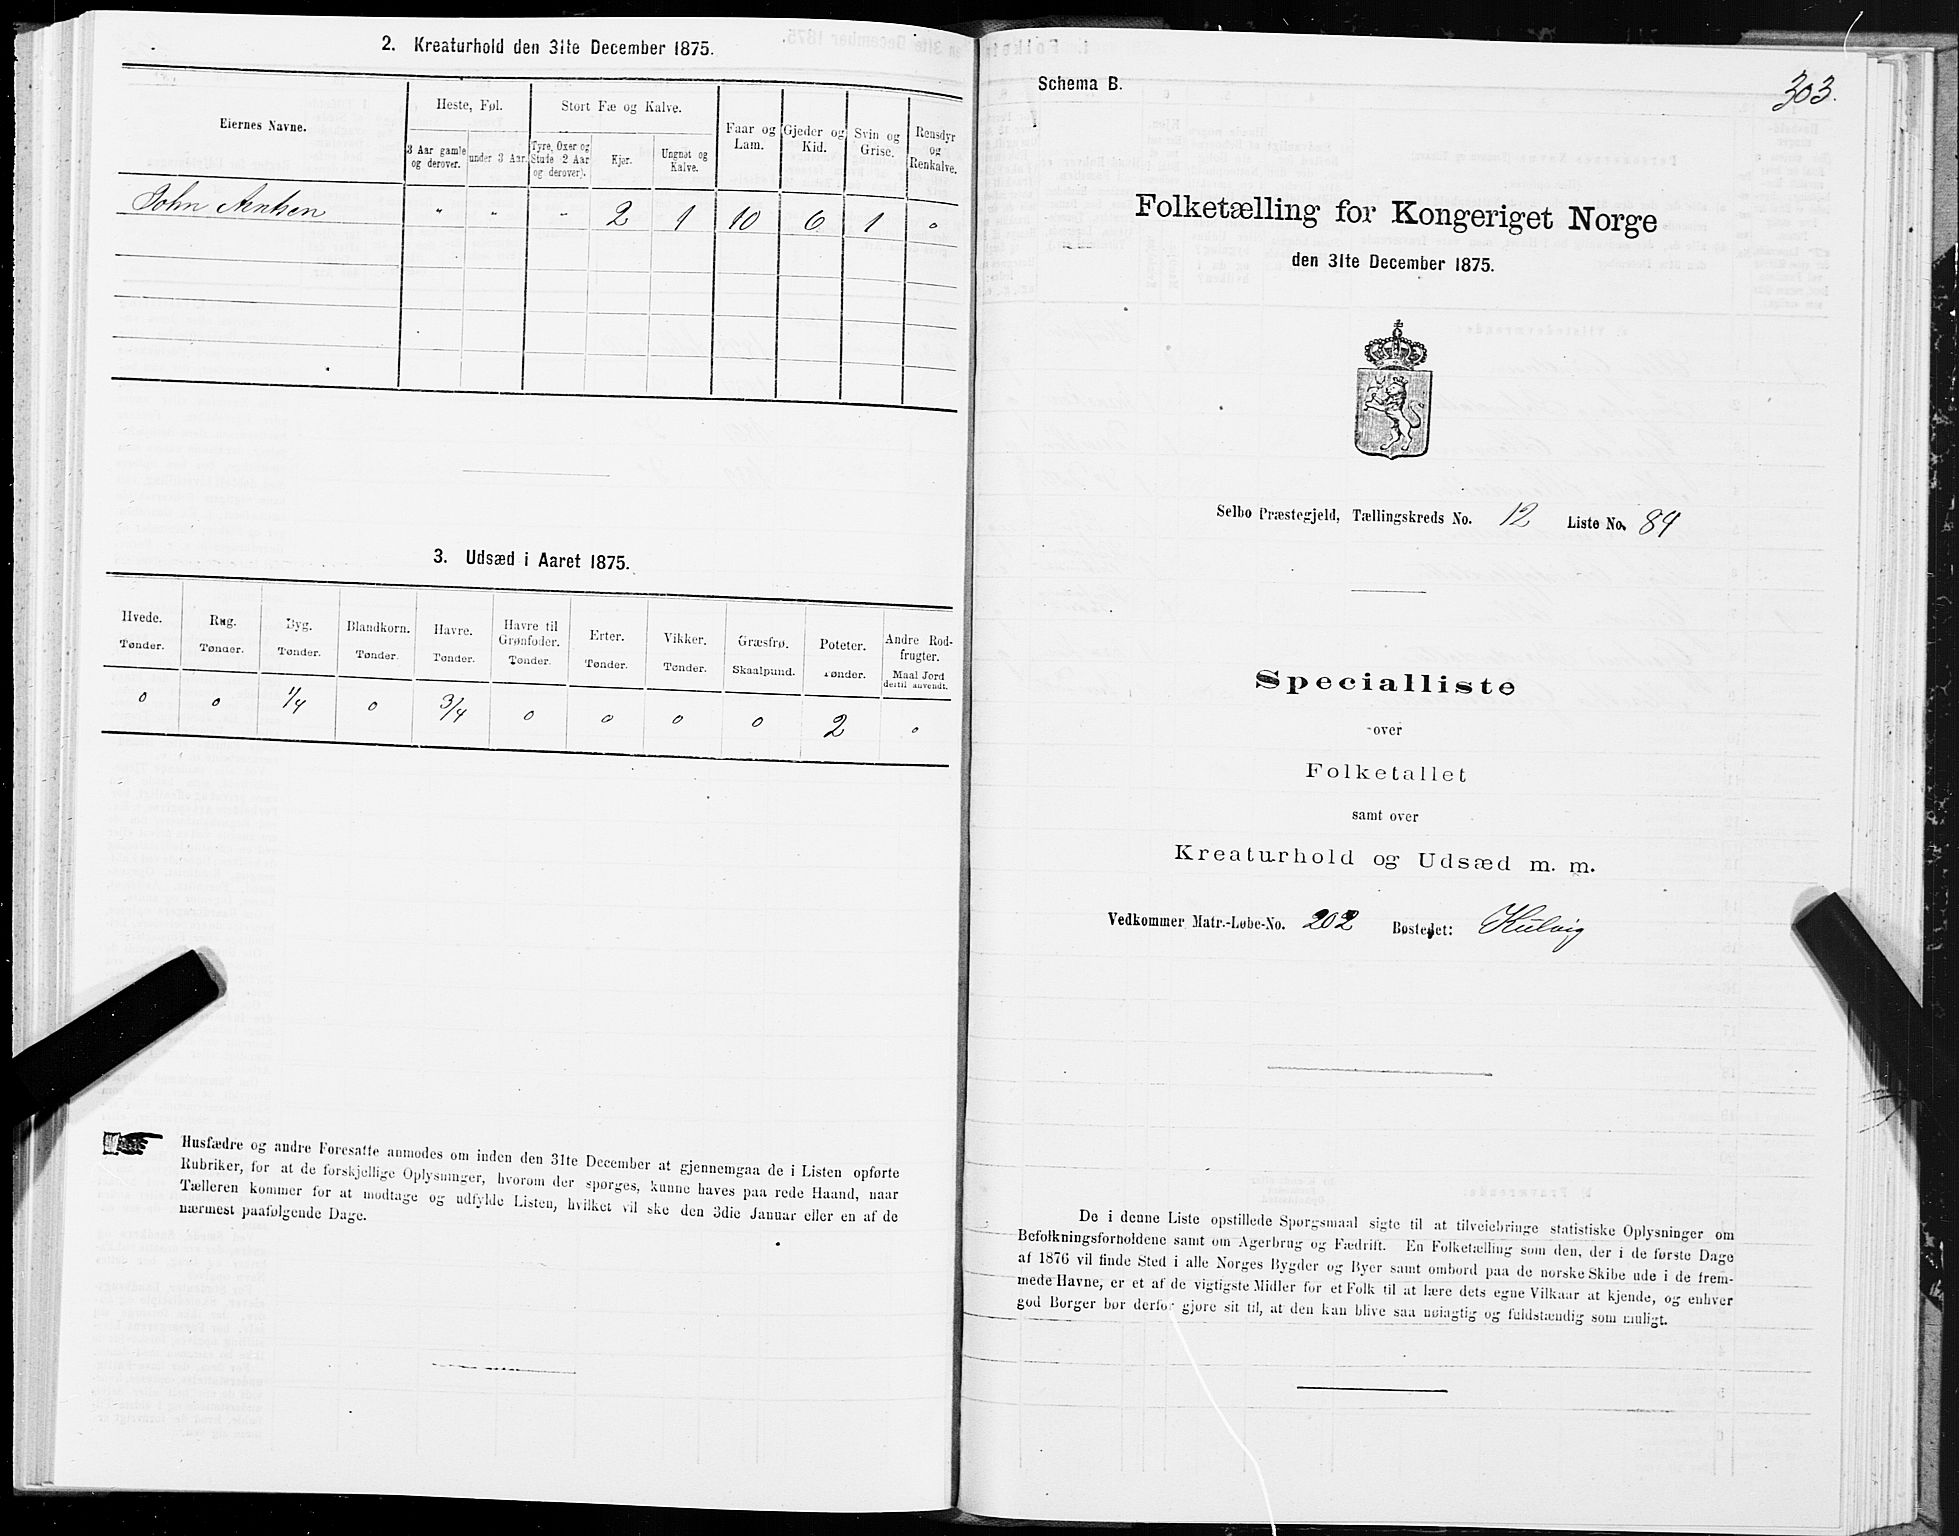 2. Kreaturhold den 31te December 1875.
Eiernes Navne.
Heste, Føl.
Stort Fæ og Kalve.
Faar og Lam.
Gjeder og Kid.
Svin og Grise.
Rensdyr og Renkalve.
3 Aar gamle og derover.
under 3 Aar.
Tyre, Oxer og Stude 2 Aar og derover).
Kjør.
Ungnøt og Kalve.
John Arntsen " " " 2 1 10 6 1 0
3. Udsæd i Aaret 1875.
Hvede. Rug. Byg. Blandkorn. Havre. Havre til Grønfoder. Erter. Vikker. Græsfrø. Poteter. Andre Rodfrugter.
Tønder. Tønder. Tønder. Tønder. Tønder. Tønder. Tønder. Tønder. Skaalpund. Tønder. Maal Jord dertil anvendt.
0 0 1/4 0 3/4 0 0 0 0 2 0
Husfædre og andre Foresatte anmodes om inden den 31te December at gjennemgaa de i Listen opførte
Rubriker, for at de forskjellige Oplysninger, hvorom der spørges, kunne haves paa rede Haand, naar
Tælleren kommer for at modtage og udfylde Listen, hvilket vil ske den 3die Januar eller en af de
nærmest paafølgende Dage.
Schema B.
303.
Folketælling for Kongeriget Norge
den 31te December 1875.
Selbo Præstegjeld, Tællingskreds No. 12 Liste No. 84
Specialliste
over
Folketallet
samt over
Kreaturhold og Udsæd m. m.
Vedkommer Matr.-Løbe-No. 202 Bostedet: Kulvig
De i denne Liste opstillede Spørgsmaal sigte til at tilveiebringe statistiske Oplysninger om
Befolkningsforholdene samt om Agerbrug og Fædrift. En Folketælling som den, der i de første Dage
af 1876 vil finde Sted i alle Norges Bygder og Byer samt ombord paa de norske Skibe ude i de frem-
mede Havne, er et af de vigtigste Midler for et Folk til at lære dets egne Vilkaar at kjende, og enhver
god Borger bør derfor gjøre sit til, at den kan blive saa nøiagtig og fuldstændig som muligt.